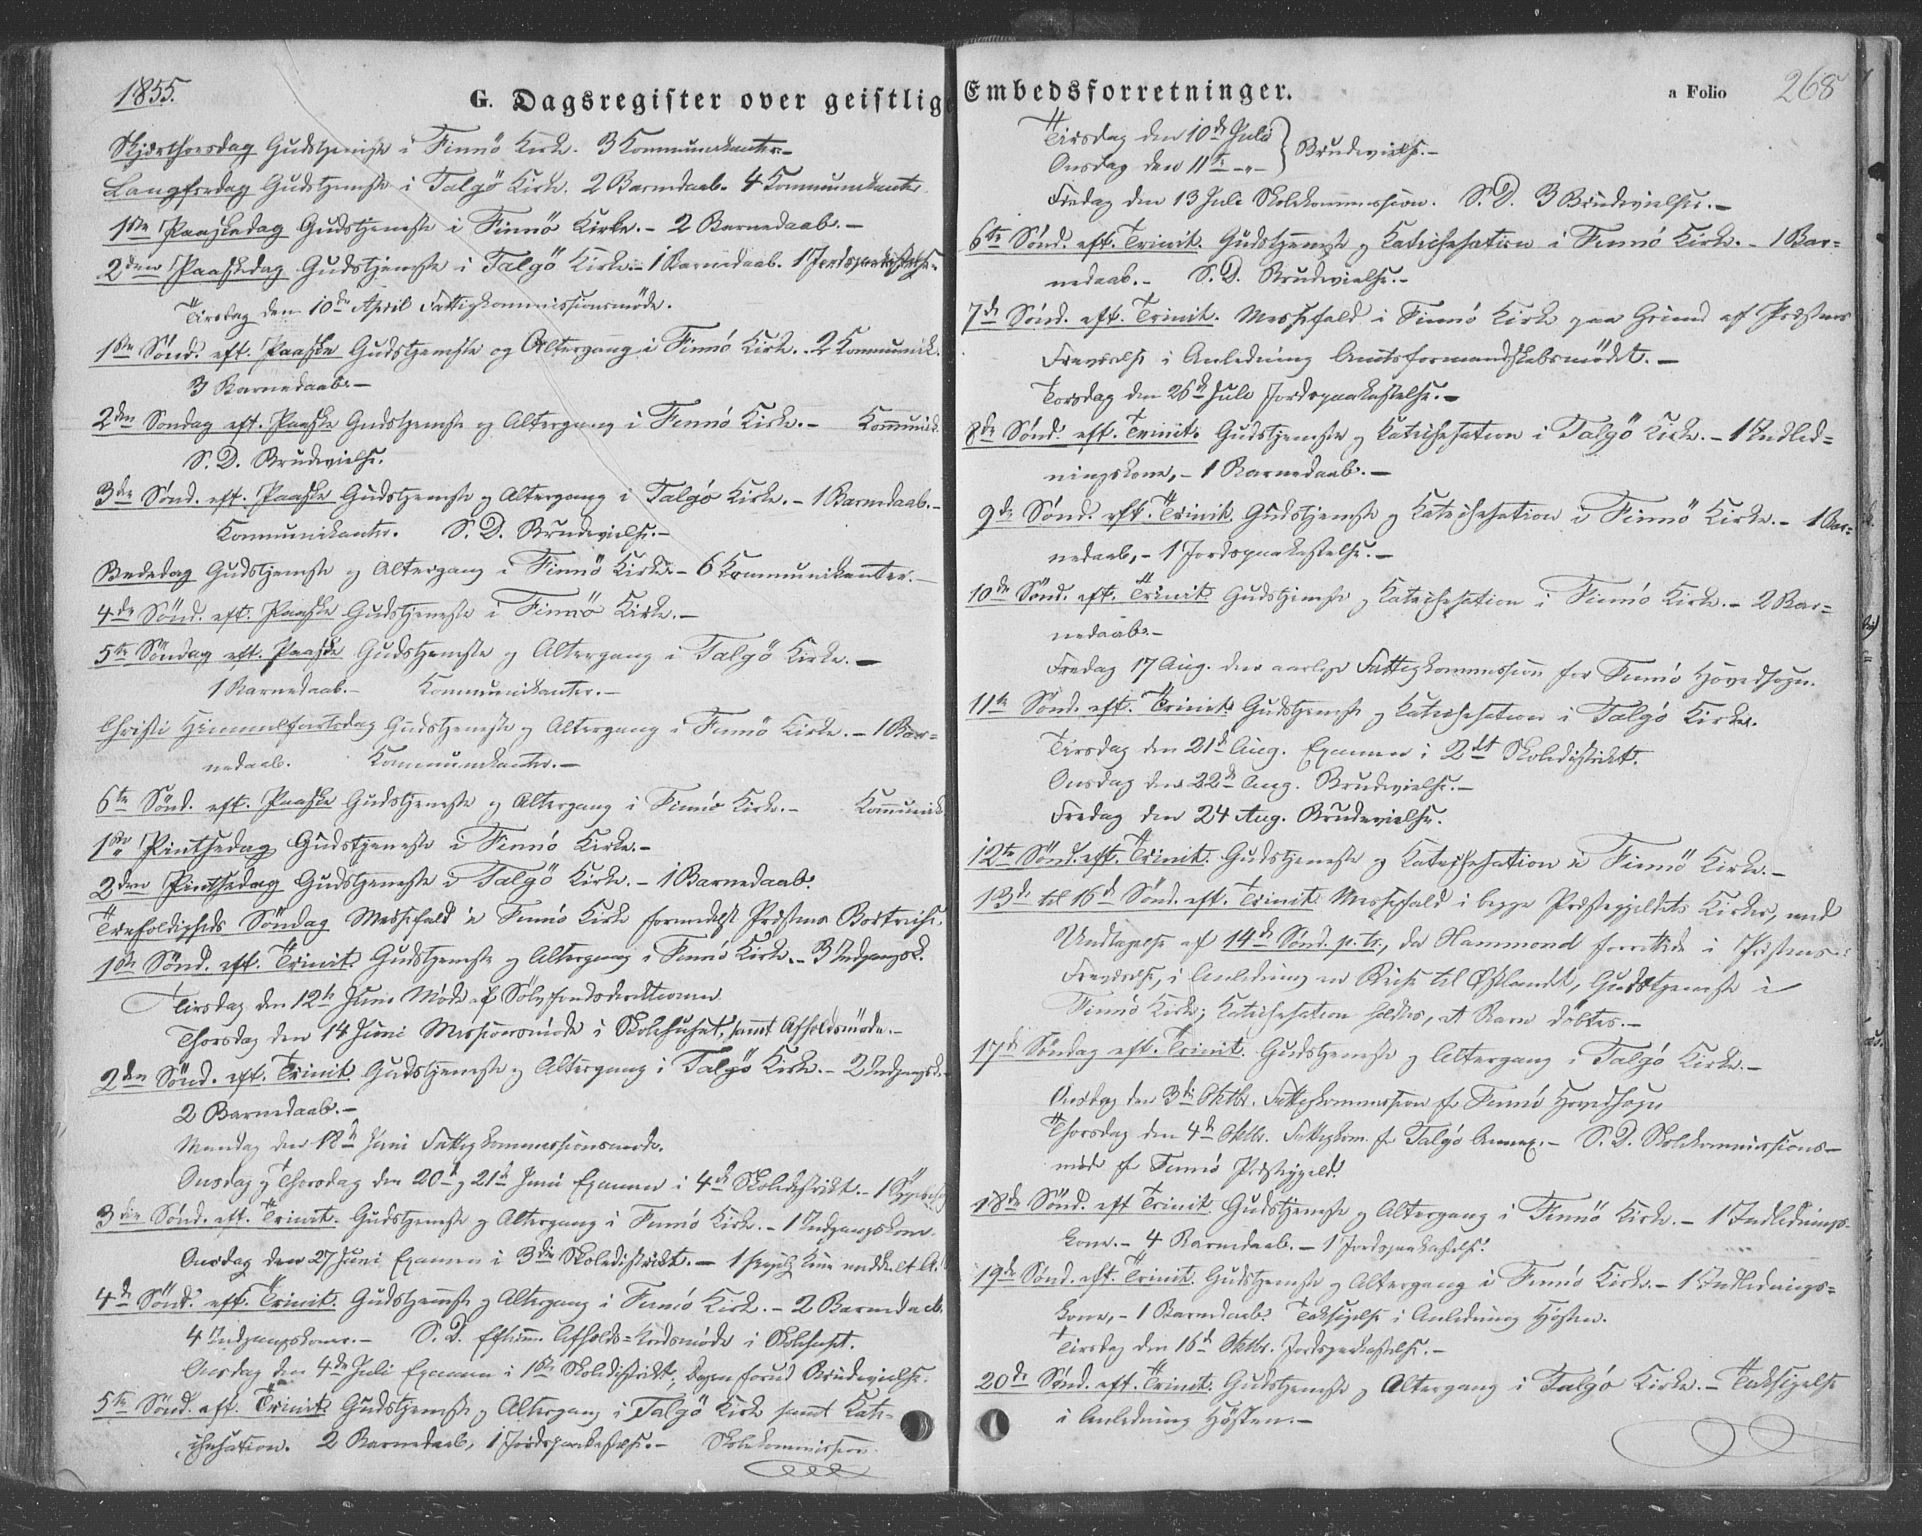 1855.
G. Dagsregister over geistlige
Skjærthorsdag Gudstjeneste i Finnö Kirke. 3 Kommunikanter.-
Langfredag Gudstjeneste i Talgö Kirke. 2 Barnedaab. 4 Kommunikanter
1ste Paaskedag Gudstjeneste i Finnö Kirke. - 2 Barnedaab. -
2den Paaskedag Gudstjeneste i Talgö Kirke. - 1 Barnedaab. 1 Jordspaakastelse.
Tirsdag den 10de April Fattigkommissionsmöde.
1ste Sönd. eft. Paaske Gudstjeneste og Altergang i Finnö Kirke. 2 Kommunik.
3 Barnedaab. -
2den Söndag eft. Paaske Gudstjeneste og Altergang i Finnö Kirke. - Kommunik.
S. D. Brudevielse.
3die Sönd. eft. Paaske Gudstjeneste og Altergang i Talgö Kirke. - 1 Barnedaab. -
Kommunikanter. S. D. Brudevielse. -
Bededag Gudstjeneste og Altergang i Finnö Kirke - 6 Kommunikanter. -
4de Sönd. eft. Paaske Gudstjeneste i Finnö Kirke. -
5te Söndag eft. Paaske Gudstjeneste og Altergang i Talgö Kirke. -
1 Barnedaab. - Kommunikanter. -
Christi Himmelfartsdag Gudstjeneste og Altergang i Finnö Kirke. - 1 Bar=
nedaab. Kommunikanter. -
6te Sönd. eft. Paaske Gudstjeneste og Altergang i Finnö Kirke. - Kommunik
1ste Pintsedag Gudstjeneste i Finnö Kirke. -
2den Pintsedag Gudstjeneste i Talgö Kirke. - 1 Barnedaab.
Trefoldigheds Söndag Messefald i Finnö Kirke formedelst Præstens Bortreise.
1ste Sönd. eft. Trinit. Gudstjeneste og Altergang i Finnö Kirke. - 3 Indgangsk.
Tirsdag den 12te Juni Möde af
Thorsdag den 14 Juni Missionsmöde i Skolehuset, samt Afholdsmöde. -
2den Sönd. eft. Trinit. Gudstjeneste og Altergang i Talgö Kirke. - 2 Indgangsk. -
2 Barnedaab. -
Mandag den 18de Juni Fattigkommissionsmöde.
Onsdag og Thorsdag den 20de og 21de Juni Examen i 4de Skoledistrikt. - 1
3die Sönd. eft. Trinit. Gudstjeneste og Altergang i Finnö Kirke. - 1 Indgangskone.
Onsdag den 27 Juni Examen i 3die Skoledistrikt. - 1
4de Sönd. eft. Trinit. Gudstjeneste og Altergang i Finnö Kirke. - 2 Barnedaab.
4 Indgangskoner. - S. D. Efterm. Afholds= möde i Skolehuset.
Onsdag den 4de Juli Examen i 1ste Skoledistrikt; Dagen forud Brudevielse.
5te Sönd. eft. Trinit. Gudstjeneste og Altergang i Talgö Kirke samt Kate-
chisation. 2 Barnedaab, 1 Jordspaakastelse. - Skolekommission.
Embedsforretninger.
a Folio 268
Tirsdag den 10de Juli
Onsdag den 11te -"- } Brudevielse. -
Fredag den 13 Juli Skolekommission. S. D. 3 Brudevielser. -
6te Sönd. eft. Trinit. Gudstjeneste og Katechisation i Finnö Kirke. - 1 Bar=
nedaab. - S. D. Brudevielse. -
7de Sönd. eft. Trinit. Messefald i Finnö Kirke paa Grund af Præstens
Fraværelse i Anledning Amtsformandskabsmödet. -
Torsdag den 26de Juli Jordspaakastelse. -
8de Sönd. eft. Trinit. Gudstjeneste og Katechisation i Talgö Kirke. - 1 Indled=
ningskone, - 1 Barnedaab. -
9de Sönd. eft. Trinit. Gudstjeneste og Katechisation i Finnö Kirke. - 1 Bar=
nedaab, - 1 Jordspaakastelse. -
10de Sönd. eft. Trinit. Gudstjeneste og Katechisation i Finnö Kirke. - 2 Bar=
nedaab. -
Fredag 17 Aug. den aarlige Fattigkommission for Finnö Hovedsogn.
11te Sönd. eft. Trinit. Gudstjeneste og Katechisation i Talgö Kirke.
Tirsdag den 21de Aug. Examen i 2det Skoledistrikt.
Onsdag den 22de Aug. Brudevielse. -
Fredag den 24 Aug. Brudevielse.
12te Sönd. eft. Trinit. Gudstjeneste og Katechisation i Finnö Kirke. -
13de til 16de Sönd. eft. Trinit. Messefald i begge Præstegjeldets Kirker, med
Undtagelse af 14de Sönd. p. tr., da Hammond forrettede i Præstens
Fraværelse, i Anledning en Reise til Östlandet, Gudstjeneste i
Finnö Kirke; Katechisation holdtes, et Barn döbtes. -
17de Söndag eft. Trinit. Gudstjeneste og Altergang i Talgö Kirke. -
Onsdag den 3die Oktbr. Fattigkommission for Finnö Hovedsogn
Thorsdag den 4de Oktbr. Fattigkom. for Talgö Annex. - S. D. Skolekommissions-
möde for Finnö Præstegjeld.
18de Sönd. eft. Trinit. Gudstjeneste og Altergang i Finnö Kirke. - 1 Indlednings-
kone. - 4 Barnedaab. - 1 Jordspaakastelse.
19de Sönd. eft. Trinit. Gudstjeneste og Altergang i Finnö Kirke. - 1 Indlednings=
kone, - 1 Barnedaab. Taksigelse i Anledning Hösten.
Tirsdag den 16de Oktbr. Jordspaakastelse. -
20de Sönd. eft. Trinit. Gudstjeneste og Altergang i Talgö Kirke. - Taksigelse
i Anledning Hösten. -